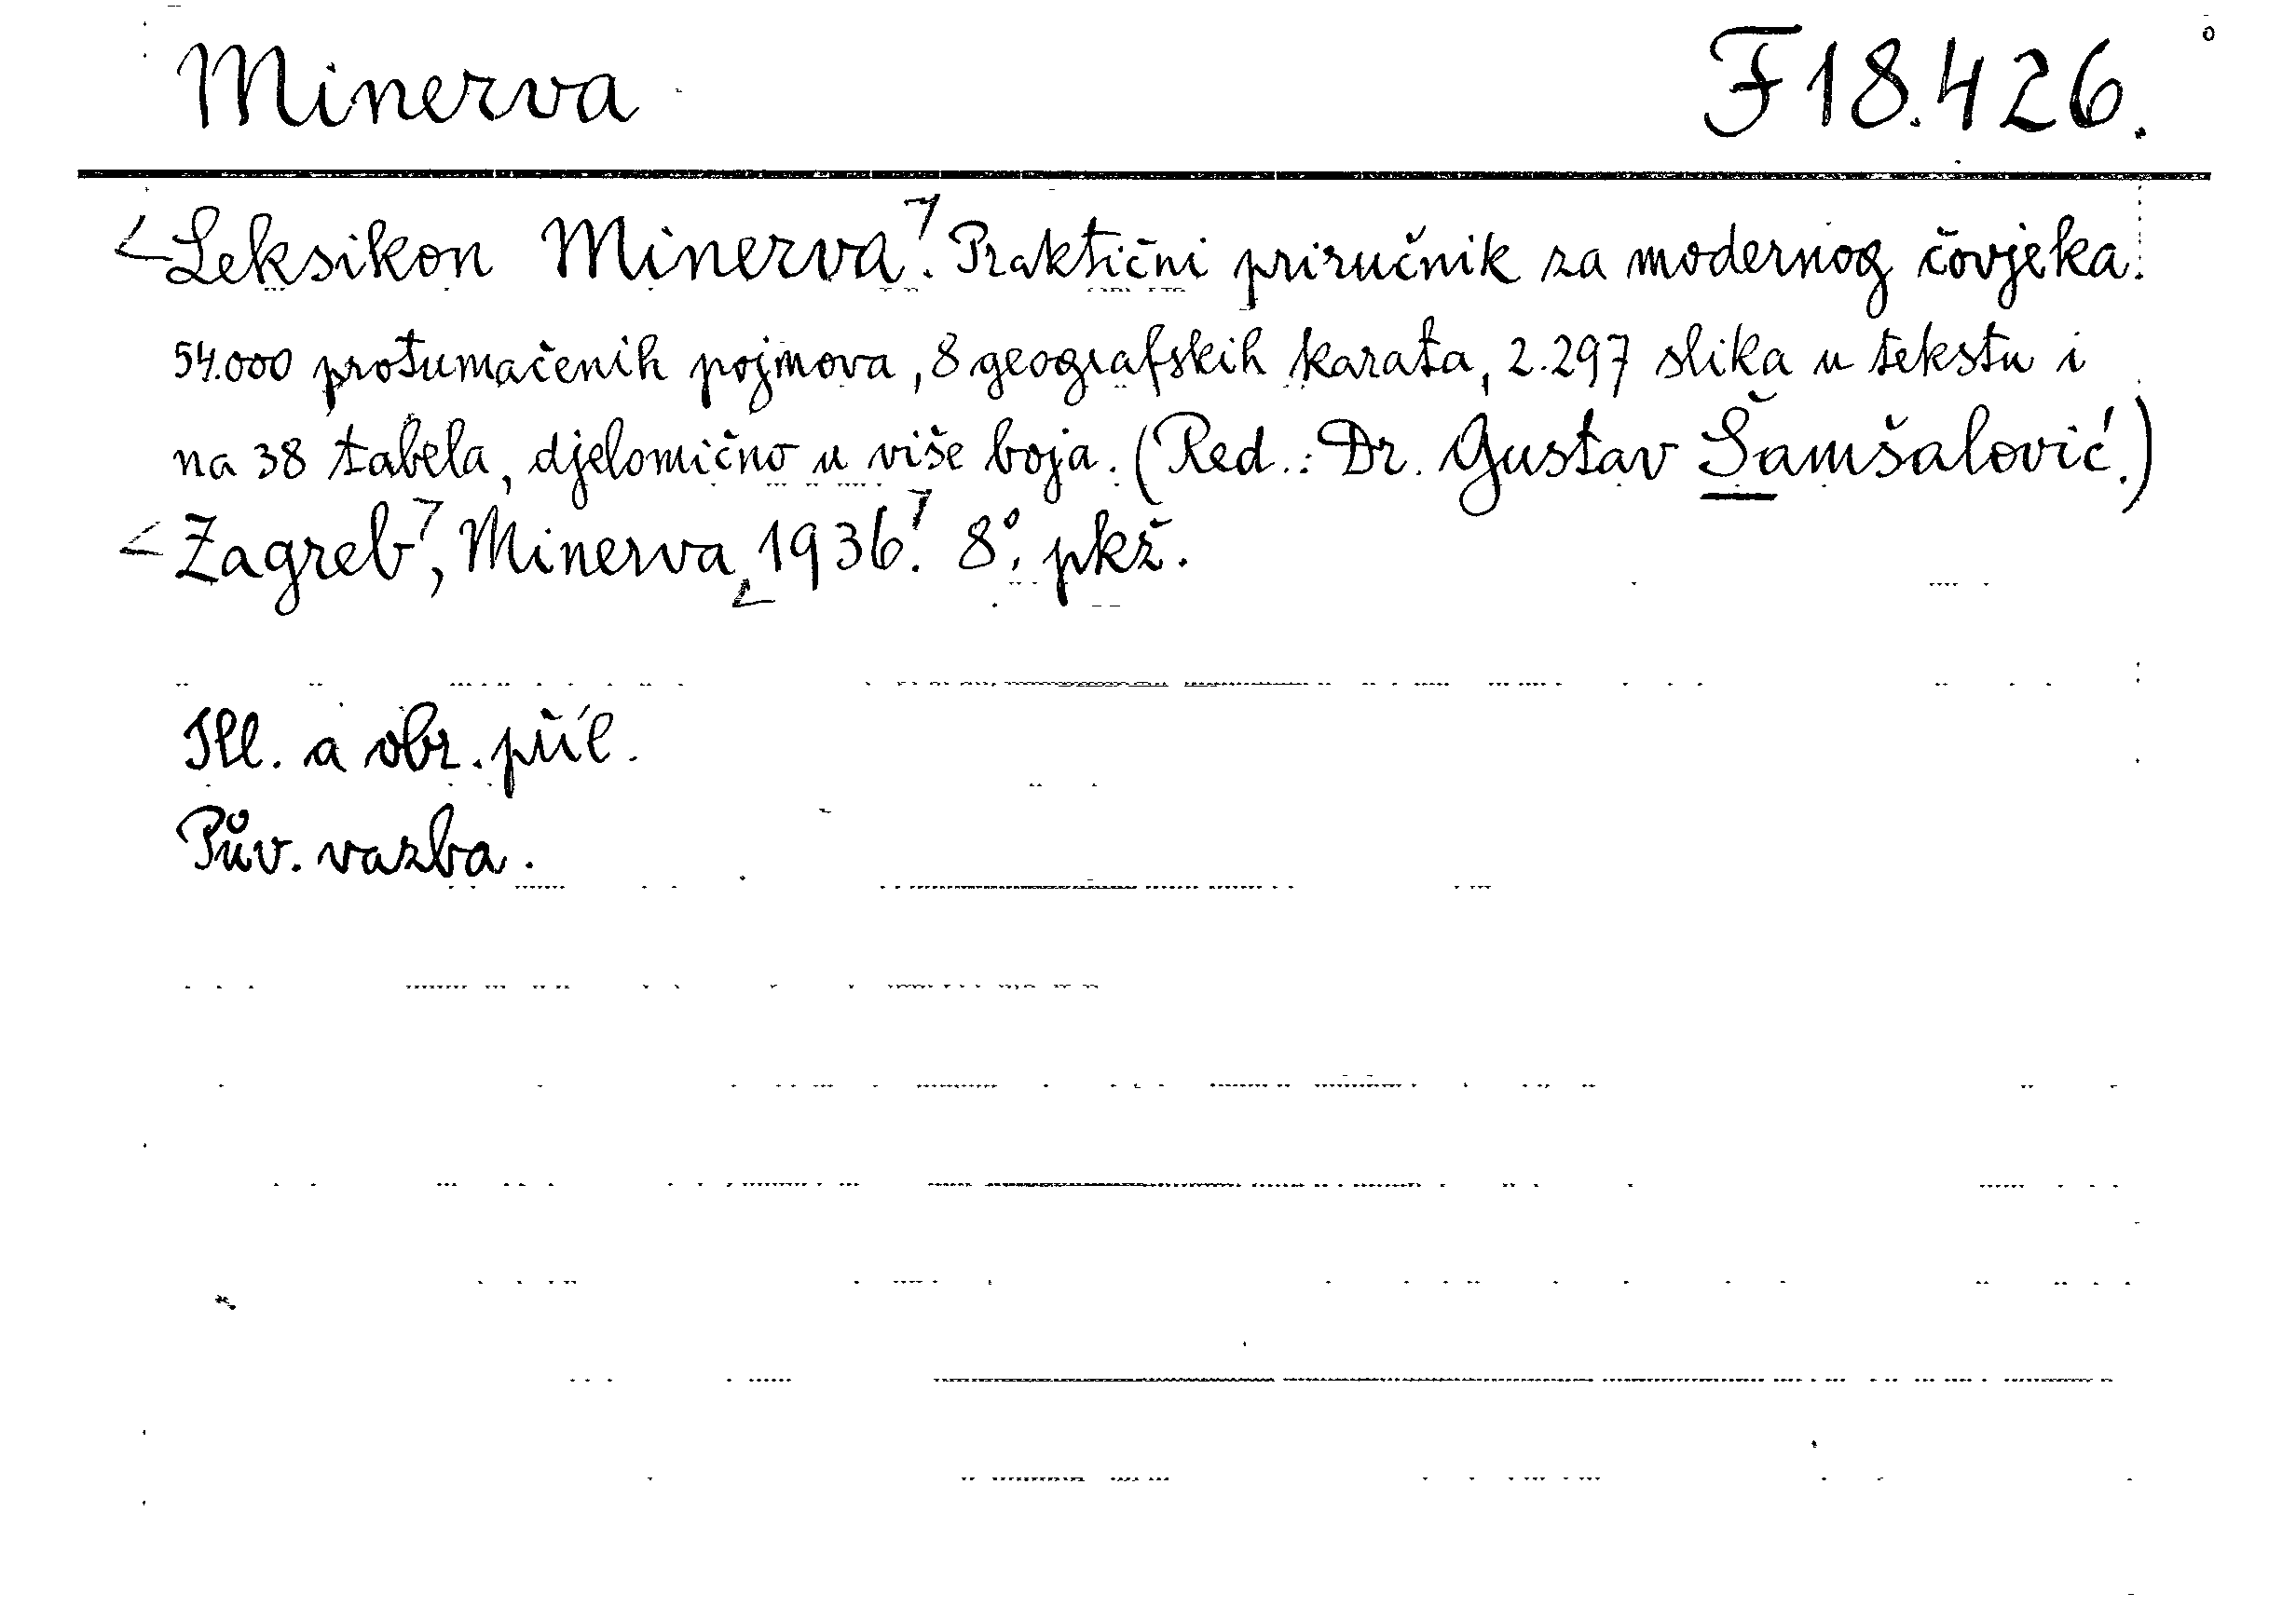 Minerva F 18.426.
Leksikon Minerva. Praktični priručnik za modernog čovjeka.
54.000 protumačenih pojmova, 8 geografskih karata, 2.297 slika u tekstu i
na 38 tabela, djelomično u više boja. (Red.: Dr. Gustav Šamšalović.)
Zagreb, Minerva, 1936. 8°. pkž.
Ill. a obr. příl.
Pův. vazba.